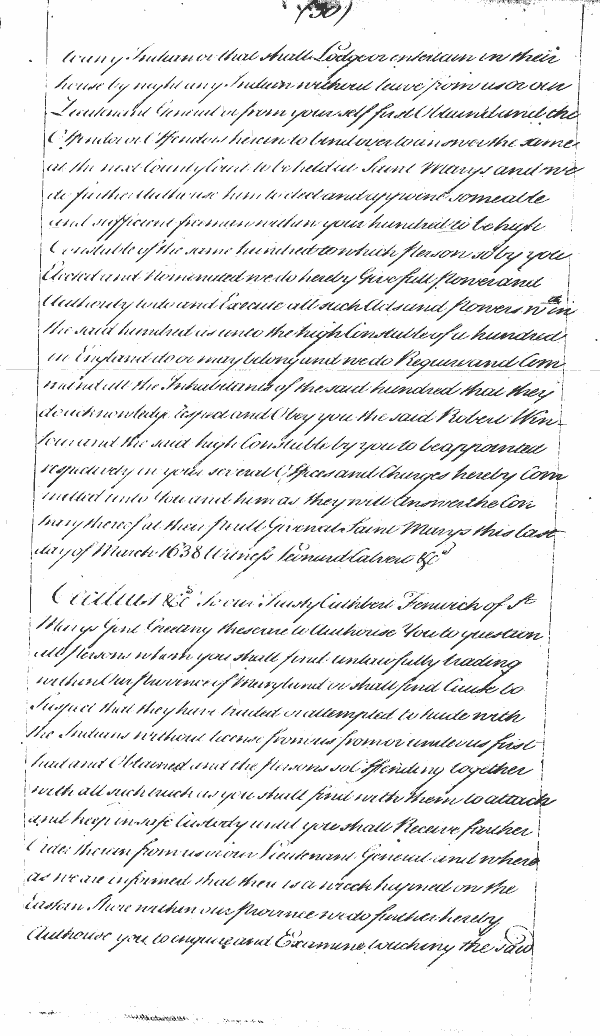 (50)
to any Indian or that shall Lodge or entertain in their
house by night any Indian without leave from us or our
Lieutenant General or from your self first Obtained and the
Offendor or Offendors herein to bind over to answer the same
at the next County Court to be held at Saint Marys and we
do further Authorise him to elect and appoint some able
and sufficient freeman within your hundred to be high
Constable of the same hundred to which Person so by you
Elected and Nominated we do hereby Give full power and
Authority to do and Execute all such Acts and Powers wthin
the said hundred as unto the high Constable of a hundred
in England do or may belong and we do Require and Com
mand all the Inhabitants of the said hundred that they
do acknowledge Respect and Obey you the said Robert Win-
tour and the said high Constable by you to be appointed
respectively in your several Offices and Charges hereby Com
mitted unto You and him as they will Answer the Con
trary thereof at their Perill Given at Saint Marys this last
day of March 1638 Witness Leonard Calvert &ca
Cecilius &ca To our Trusty Cuthbert Fenwick of St
Marys Gent Greeting these are to Authorise You to question
all Persons whom you shall find unlawfully trading
within Our Province of Maryland or shall find Cause to
Suspect that they have traded or attempted to trade with
the Indians without license from us from or under us first
had and Obtained and the Persons so Offending together
with all such truck as you shall find with them to attach
and keep in safe Custody until you shall Receive further
Order therein from us or our Lieutenant General and where
as we are informed that there is a wreck hapned on the
Eastern Shore within our Province we do further hereby
Authorise you to inquire and Examine touching the said